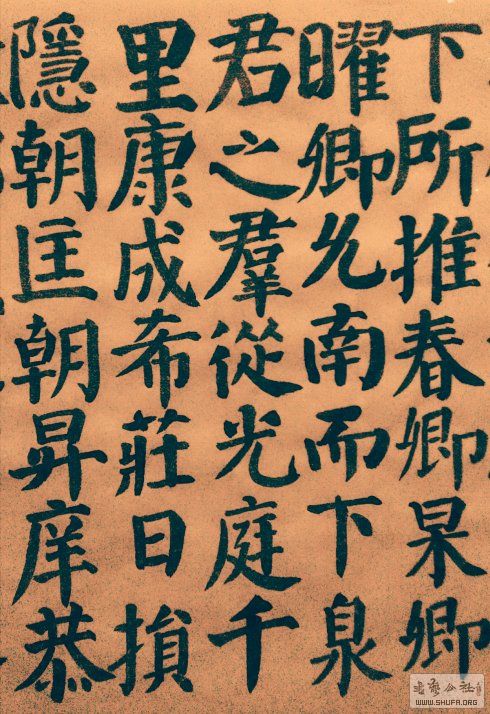 下所推春卿杲卿
曜卿允南而下臮
君之羣從光庭千
里康成希莊日損
隱朝匡朝昇庠恭
WWW.SHUFA.ORG